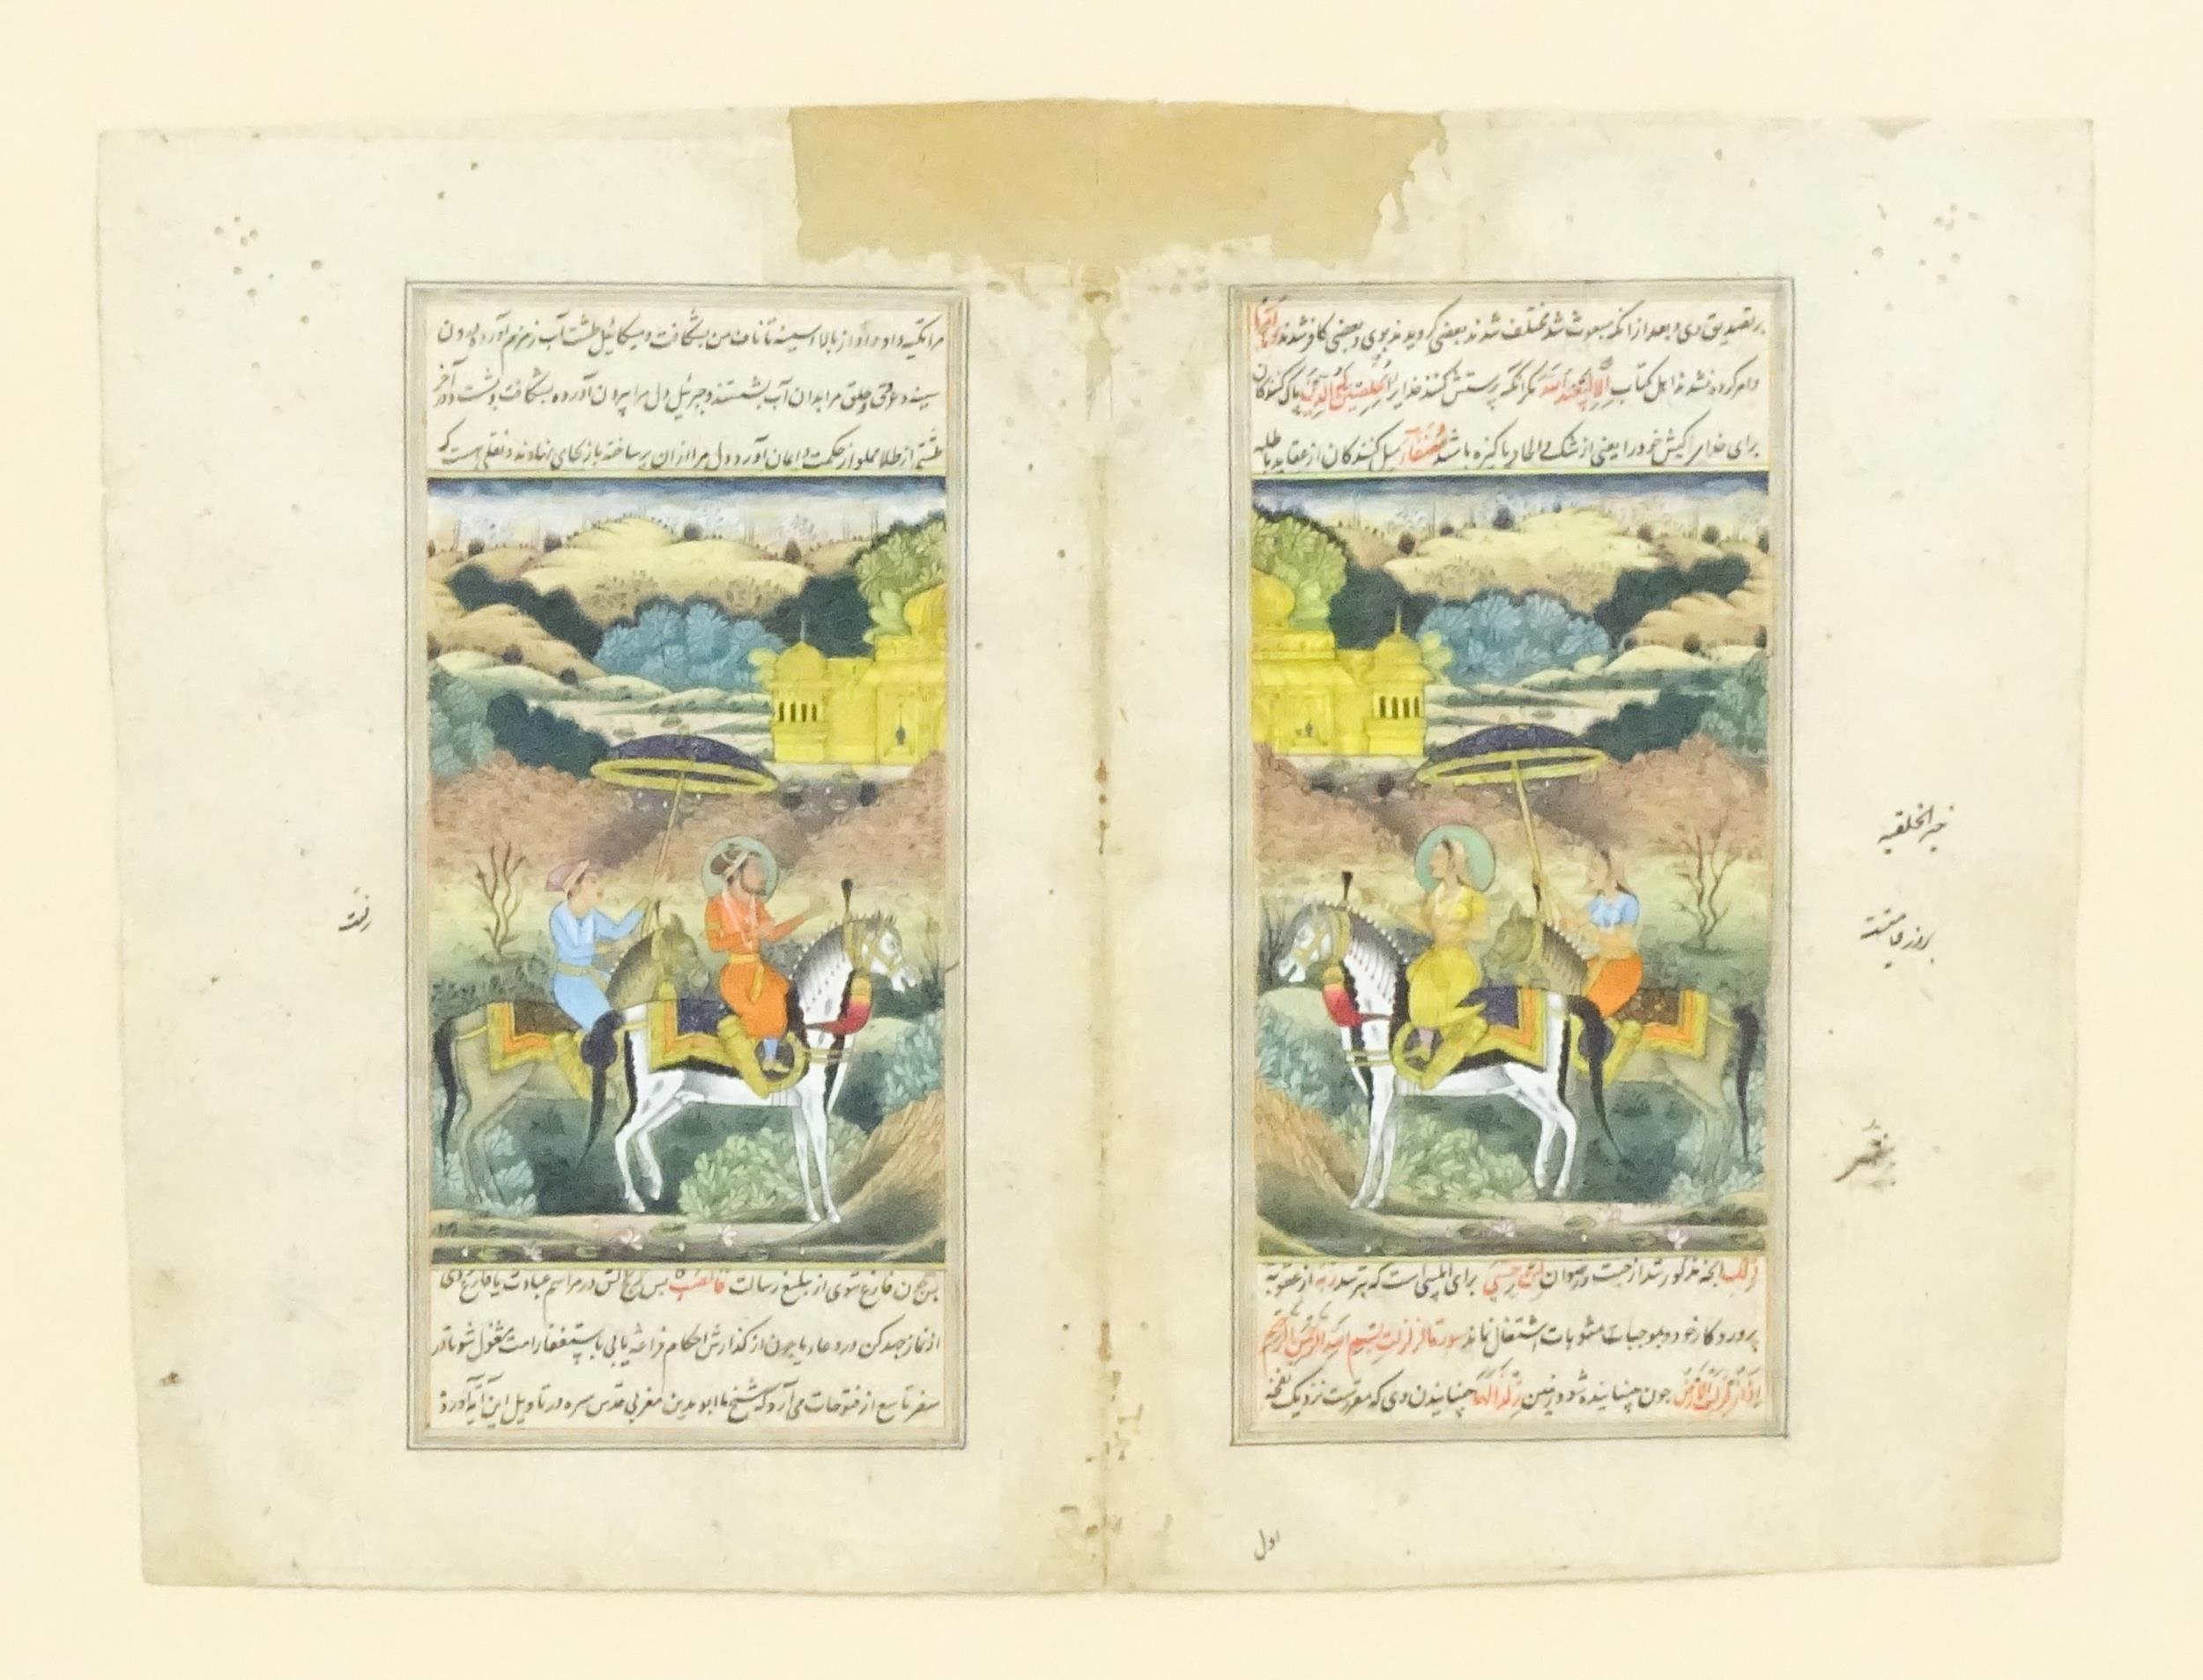 بر تصدیق وی و بعد از انکه مبعوث شد مختلف شدند بعضی کرویدند بوی و بعضی کافر شدند
وامر کرده نشدند اهل کتاب الا لیعبدوا الله مکر انکه پرستش کنند خدایرا مخلصین له الدین پاک کنندکان
برای خدای کیش خود را یعنی از شک و الحاد پاکیزه باشند حنفاء میل کنندکان از عقاید باطله
ذلک انچه مذکور شد از جنت و رضوان لمن خشی برای انکسی است که بترسد ربه از عقوبة
پروردکار خود و بموجبات مثوبات اشتغال نماید سورة الزلزلت بسم الله الرحمن الرحیم
اذا زلزلت الارض چون جنبانیده شود زمین زلزالها جنبانیدن وی که مقررست نزدیک نفخه
خیر الخلقیه
اول
مرا تکیه داد و از بالا سینه تا ناف من بشکافت و میکائیل طشت آب زمزم آورد و درون
سینه و عروق و حلق مرا بدان آب بشستند و جبرئیل دل مرا بیرون آورده بشکافت و بشست و در آخر
طشتی از طلا مملو از حکمت و ایمان آورد و دل مرا از ان پر ساخته باز بجای نهادند و نقلی است که
پس چون فارغ شوی از تبلیغ رسالت فانصب پس رنج کش در مراسم عبادت یا فارغ شوی
از نماز جهد کن در دعا یا چون از کذارش احکام فراغه یابی باستغفار امت مشغول شو و در
سفر تاسع از فتوحات می آرد که شیخ ما ابو مدین مغربی قدس سره در تاویل این آیه آورده
رفت